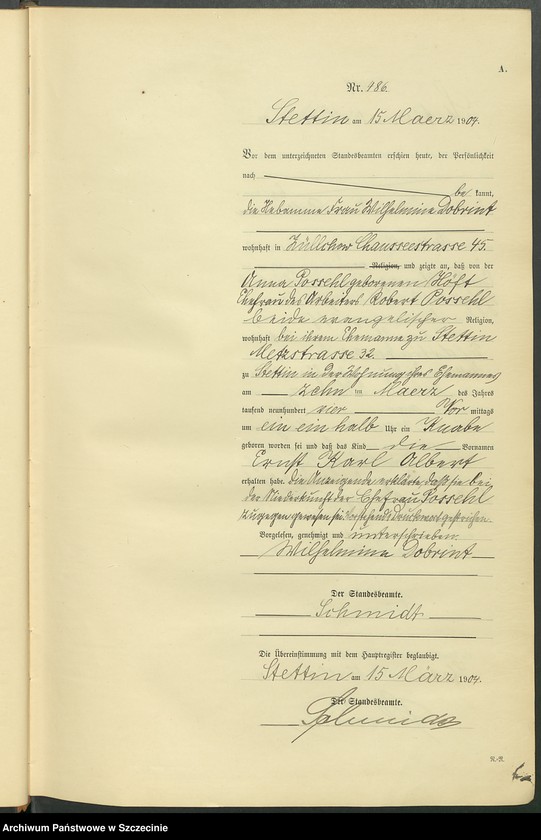 A.
Nr. 986.
Stettin am 15 Maerz 1904.
Vor dem unterzeichneten Standesbeamten erschien heute, der Persönlichkeit
nach be kannt,
die Hebamme Frau Wilhelmine Dobrint
wohnhaft in Züllchow Chausseestrasse 45.
Religion, und zeigte an, daß von der
Anna Possehl geborenen Höft
Ehefrau des Arbeiters Robert Possehl
beide evangelischer Religion,
wohnhaft bei ihrem Ehemanne zu Stettin
Metzstrasse 32
zu Stettin in der Wohnung ihres Ehemannes
am zehn ten Maerz des Jahres
tausend neunhundert vier Vor mittags
um ein ein halb Uhr ein Knabe
geboren worden sei und daß das Kind die Vornamen
Ernst Karl Albert
erhalten habe. Die Anzeigende erklärte daß sie bei
der Niederkunft der Ehefrau Possehl
zugegen gewesen sei. Vorstehend Druckwort gestrichen.
Vorgelesen, genehmigt und unterschrieben.
Wilhelmine Dobrint
Der Standesbeamte.
Schmidt
Die Übereinstimmung mit dem Hauptregister beglaubigt.
Stettin am 15 März 1904.
Der Standesbeamte.
Archiwum Państwowe w Szczecinie